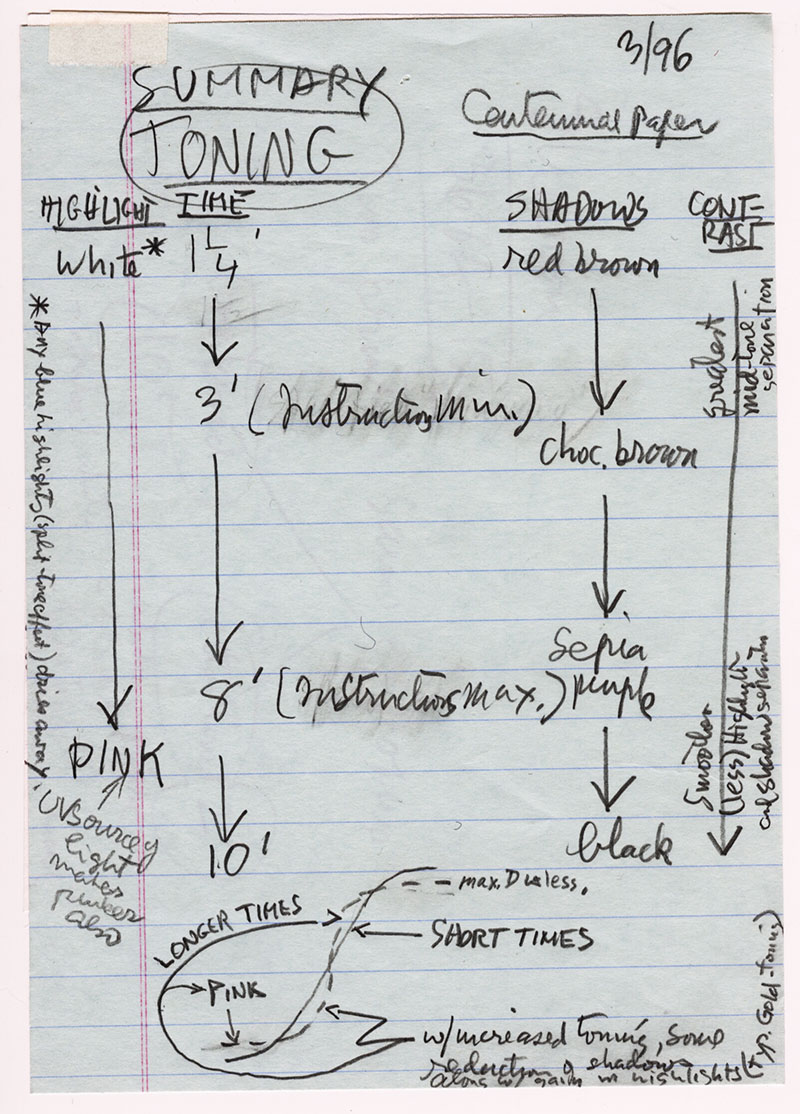 3/96
SUMMARY
TONING
Centennial Paper
HIGHLIGHT
TIME
SHADOWS
CONT-
RAST
White*
1 1/4'
red brown
greatest
mid-tone
separation
3' (Instructions Min.)
choc. brown
*Any blue highlights (split-tone effect) dries away.
8' (Instructions Max.)
sepia
purple
Smoother
(less) Highlight
and shadow separation
PINK
UV Source
light
makes
pinker
also
10'
black
max. D is less.
LONGER TIMES
SHORT TIMES
PINK
w/increased toning, some
reduction of shadows
along w/ gain in highlights (typ. Gold-toning)